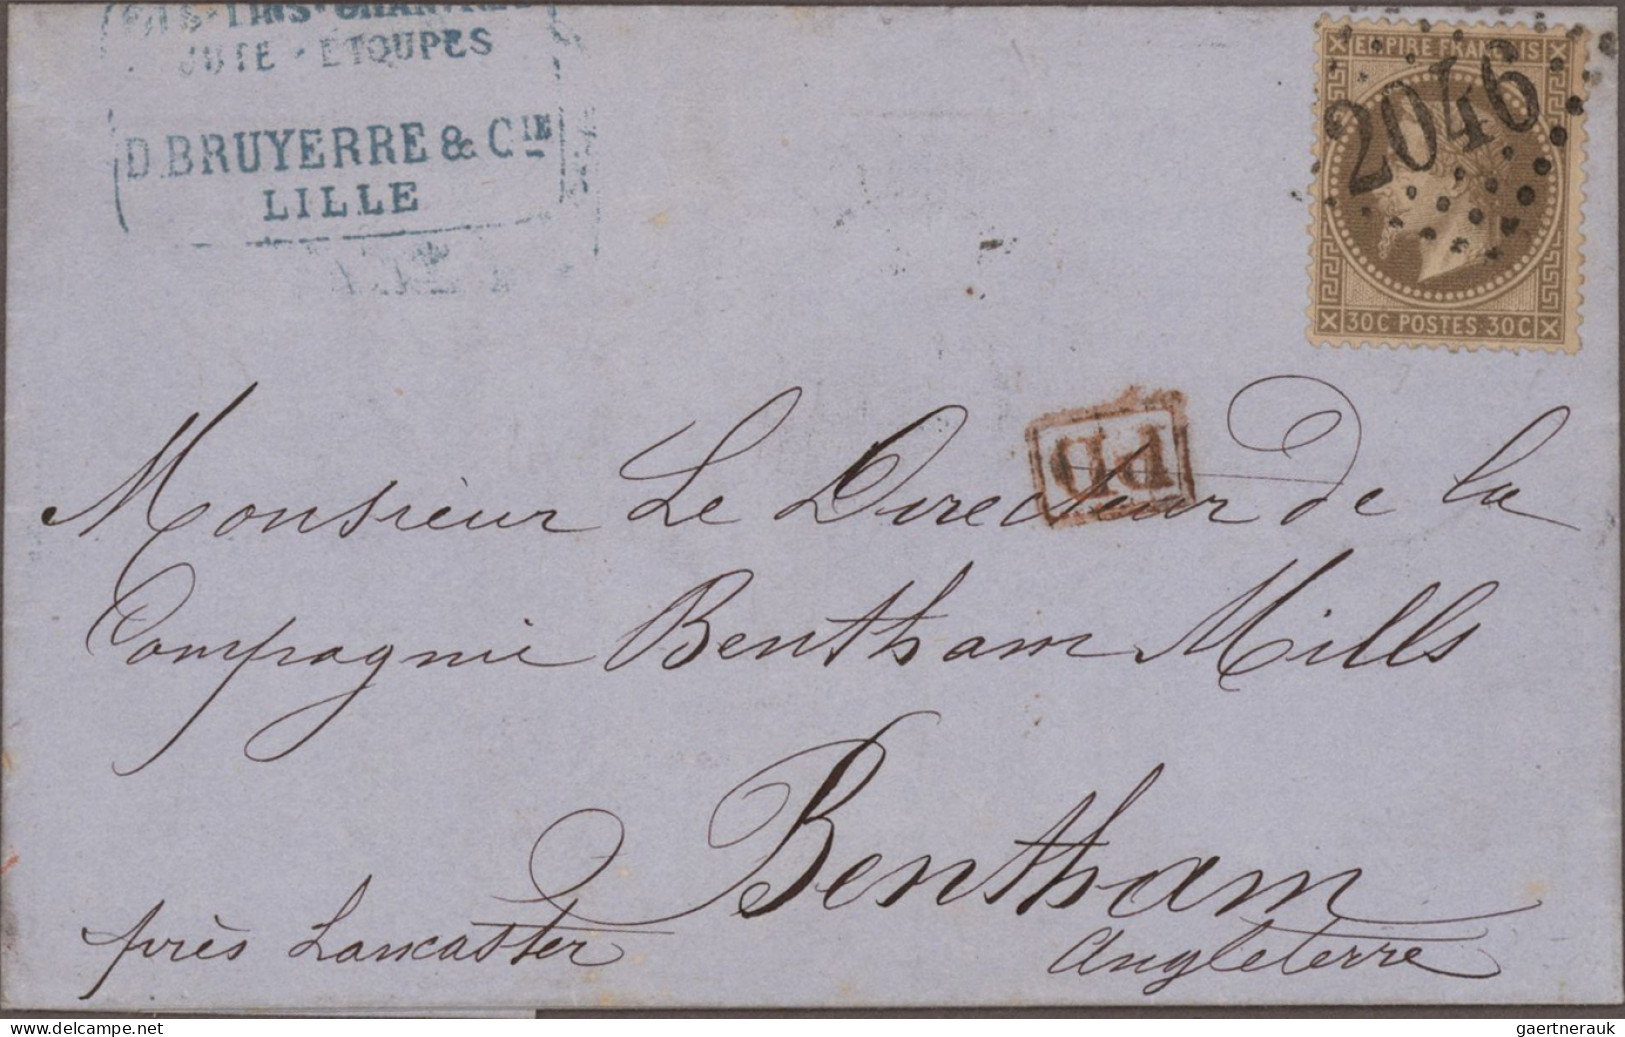 LINS
JUTE - ETOUPES
D. BRUYERRE & CIE
LILLE
EMPIRE FRANÇAIS
2046
30 C POSTES. 30 C
PD
Monsieur Le Directeur de la
Compagnie Bentham Mills
Bentham
près Lancaster
Angleterre
www.delcampe.net
gaertnerauk